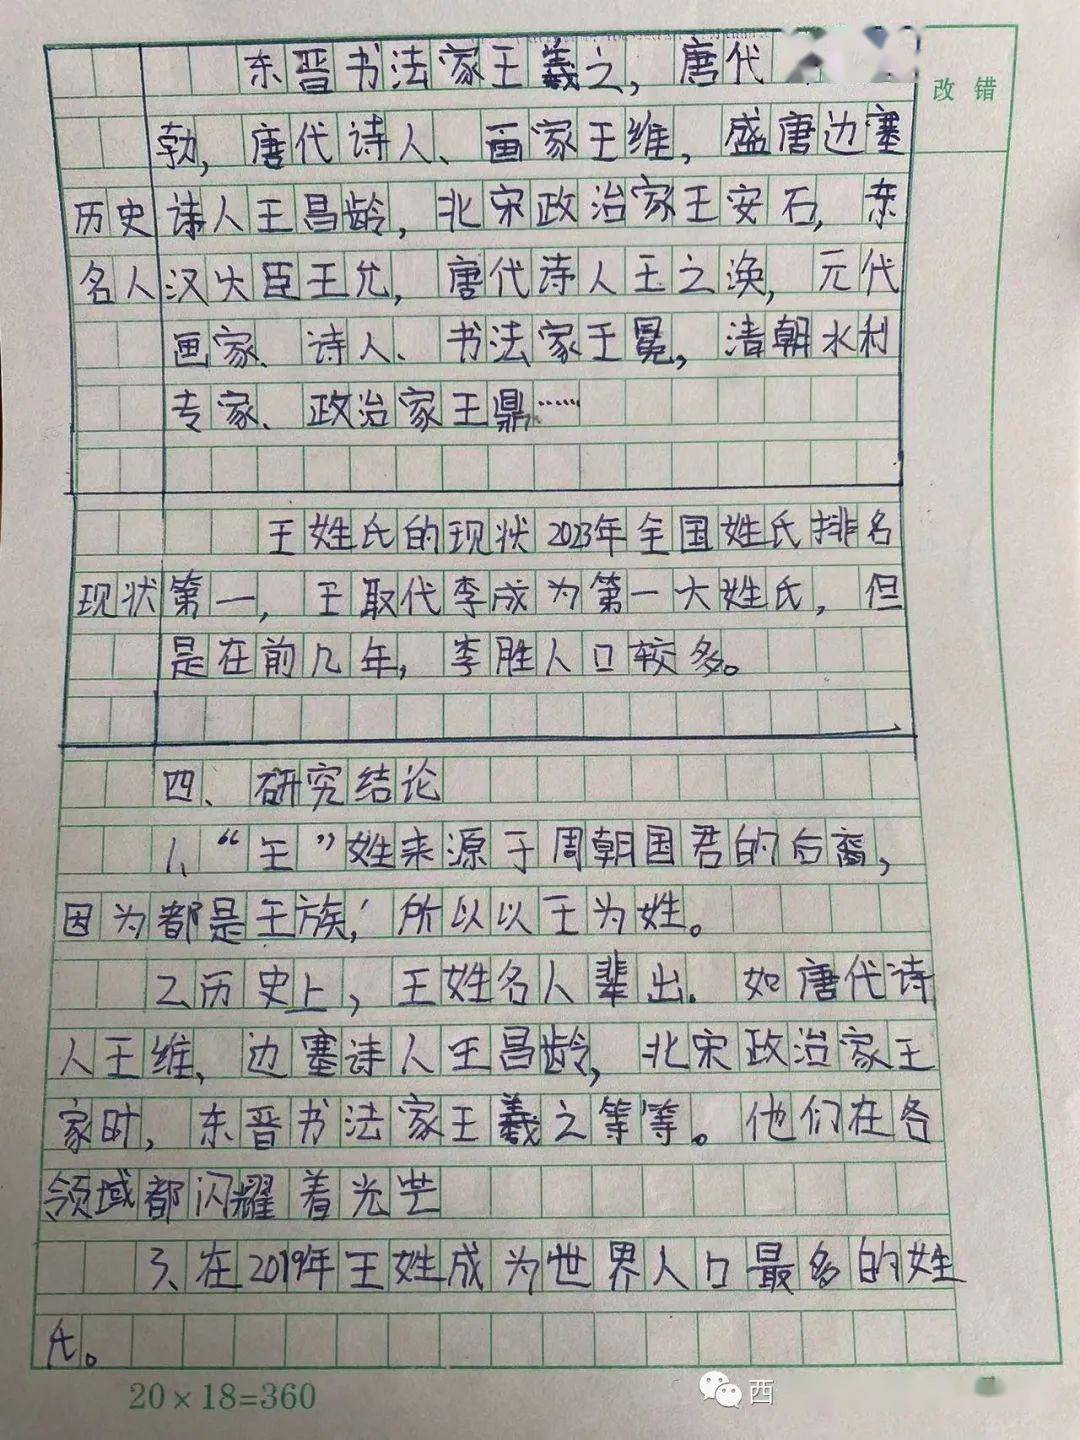 东晋书法家王羲之，唐代
改错
勃，唐代诗人、画家王维，盛唐边塞
历史 诗人王昌龄，北宋政治家王安石，东
名人 汉大臣王允，唐代诗人王之涣，元代
画家、诗人、书法家王冕，清朝水利
专家、政治家王鼎……
王姓氏的现状2023年全国姓氏排名
现状 第一，王取代李成为第一大姓氏，但
是在前几年，李胜人口较多。
四、研究结论
1、“王”姓来源于周朝国君的后裔，
因为都是王族，所以以王为姓。
2.历史上，王姓名人辈出.如唐代诗
人王维、边塞诗人王昌龄，北宋政治家王
家时，东晋书法家王羲之等等。他们在各
领域都闪耀着光芒
3、在2019年王姓成为世界人口最多的姓
氏。
20×18=360
西